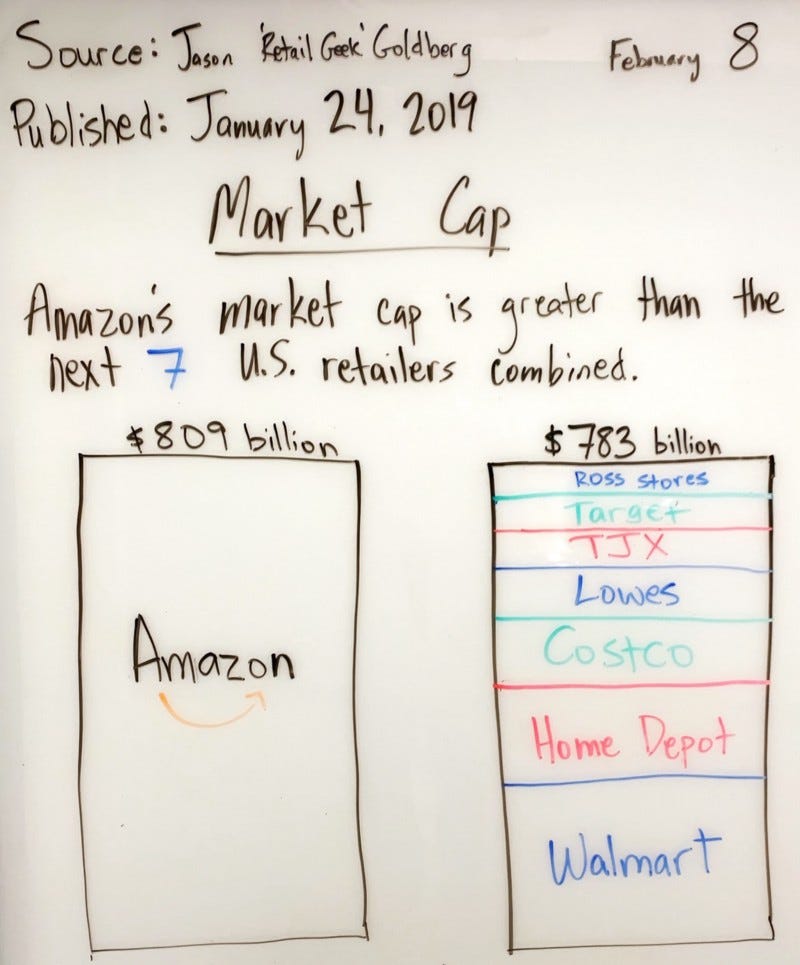 Source: Jason 'Retail Geek' Goldberg
February 8
Published: January 24, 2019
Market Cap
Amazon's market cap is greater than the
next 7 U.S. retailers combined.
$809 billion
$783 billion
Ross Stores
Target
TJX
Lowes
Costco
Amazon
Home Depot
Walmart